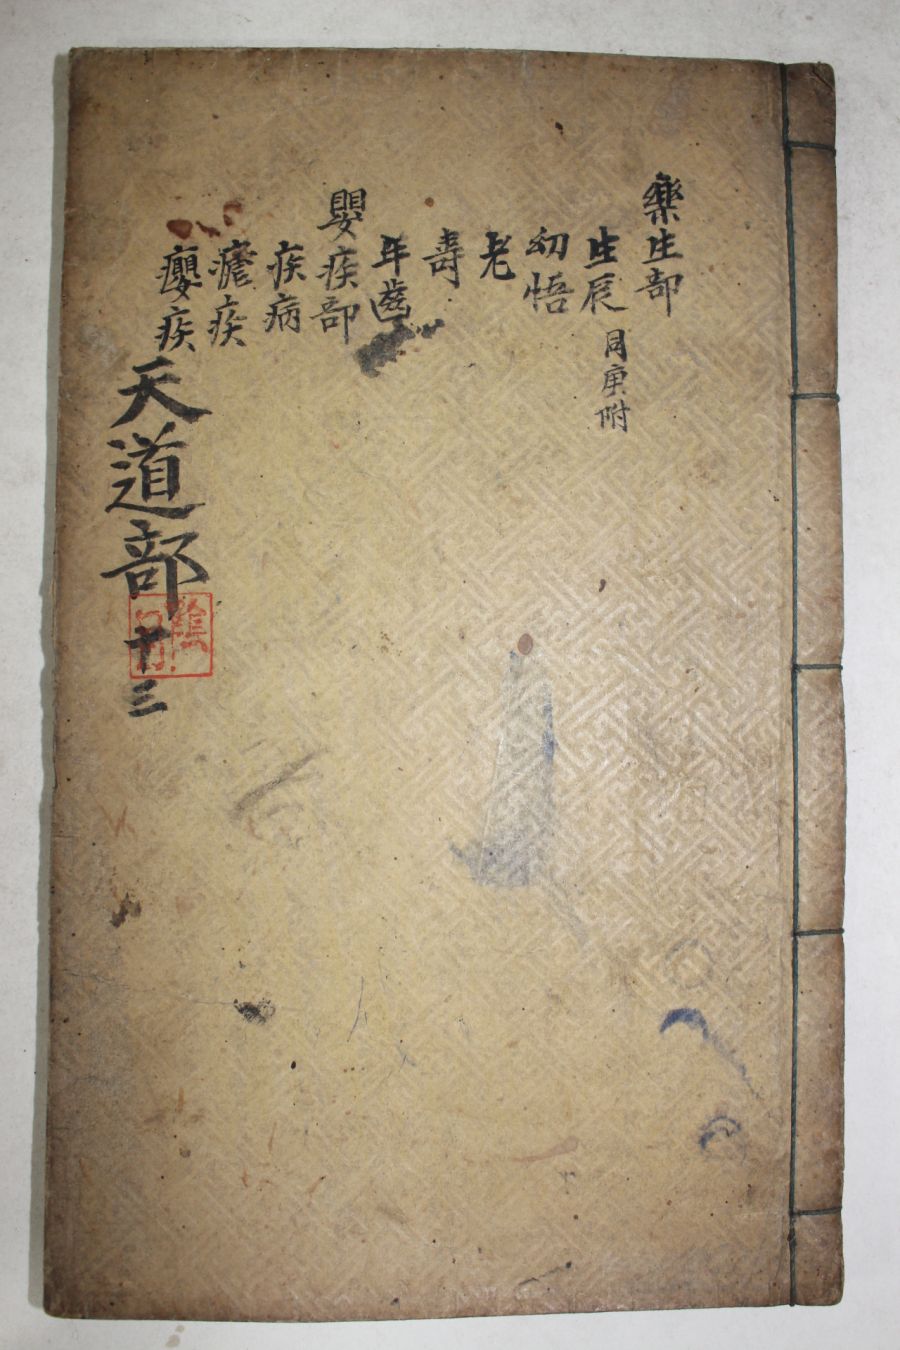 樂生部
生辰 同庚附
幼悟
老
壽
年齒
嬰疾部
疾病
癒疾
癭疾
天道部 十三